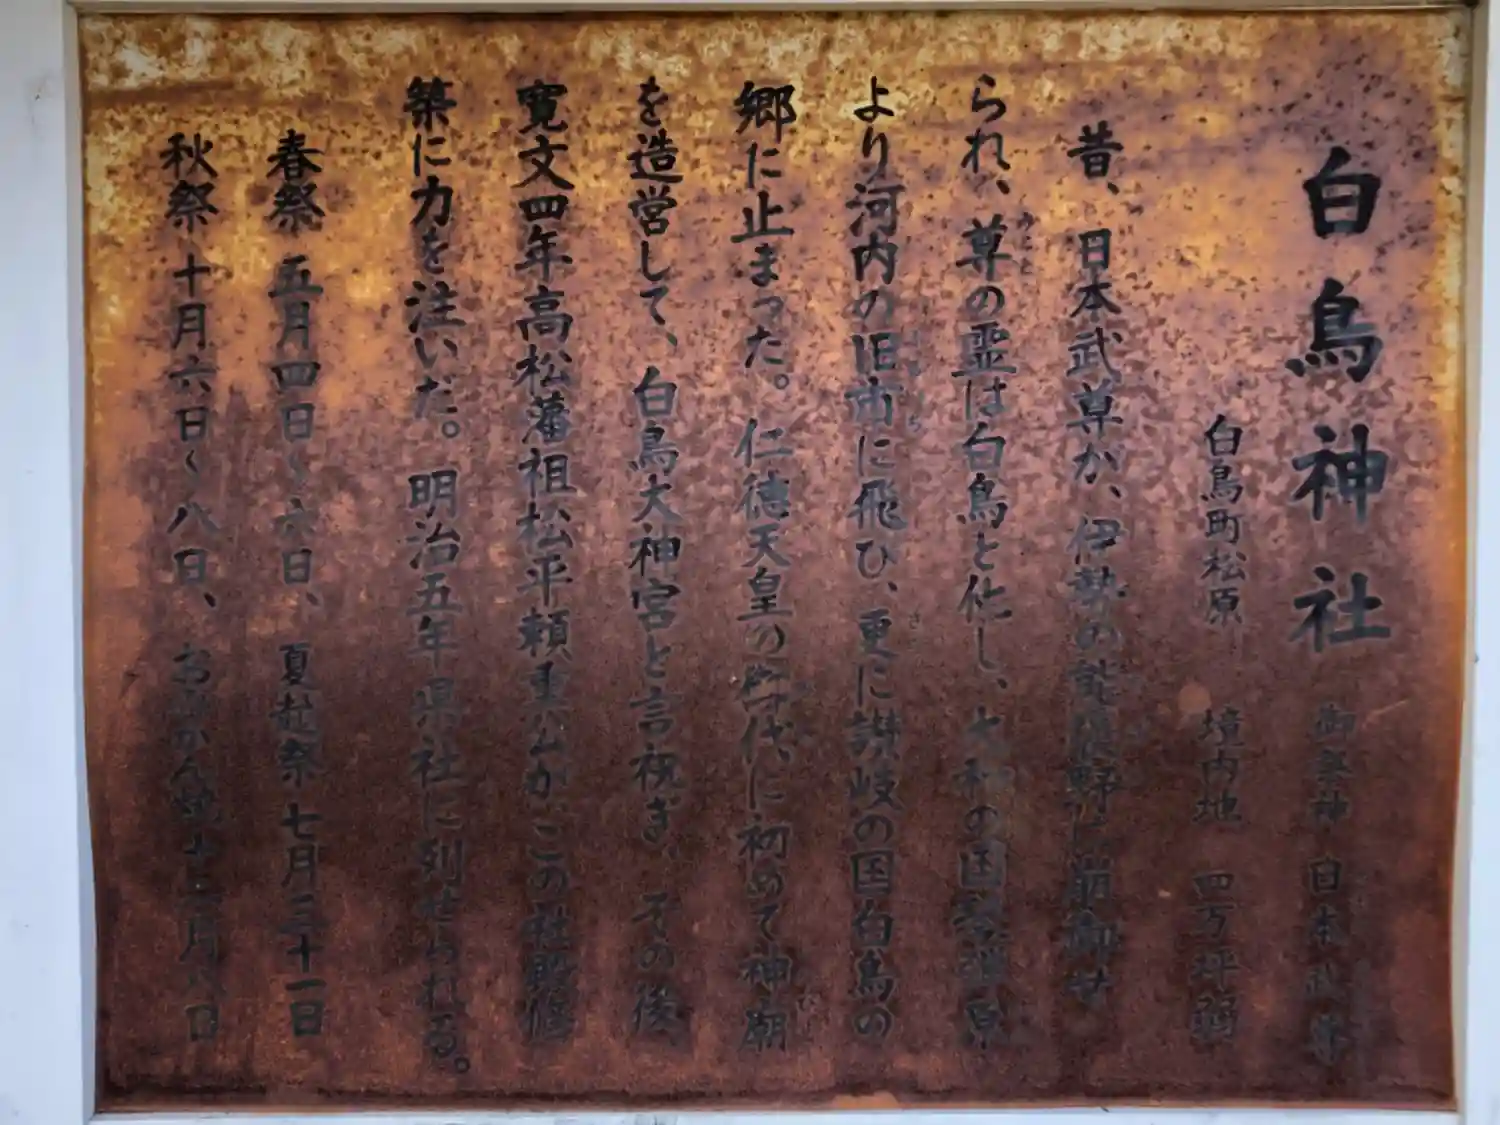 白鳥神社 御祭神 日本武尊
白鳥町松原 境内地 四万坪弱
昔、日本武尊が、伊勢の能褒野に崩御せ
られ、尊の霊は白鳥と化し、大和の国琴弾原
より河内の旧市に飛ひ、更に讃岐の国白鳥の
郷に止まった。仁徳天皇の御代、に初めて神廟
を造営して、白鳥大神宮と言祝ぎ、その後、
寛文四年高松藩祖松平頼重公が、この社殿修
築に力を注いだ。明治五年県社に列せられる。
春祭 五月四日〜六日、 夏越祭 七月三十一日
秋祭 十月六日〜八日、 おみかん焼 十二月八日